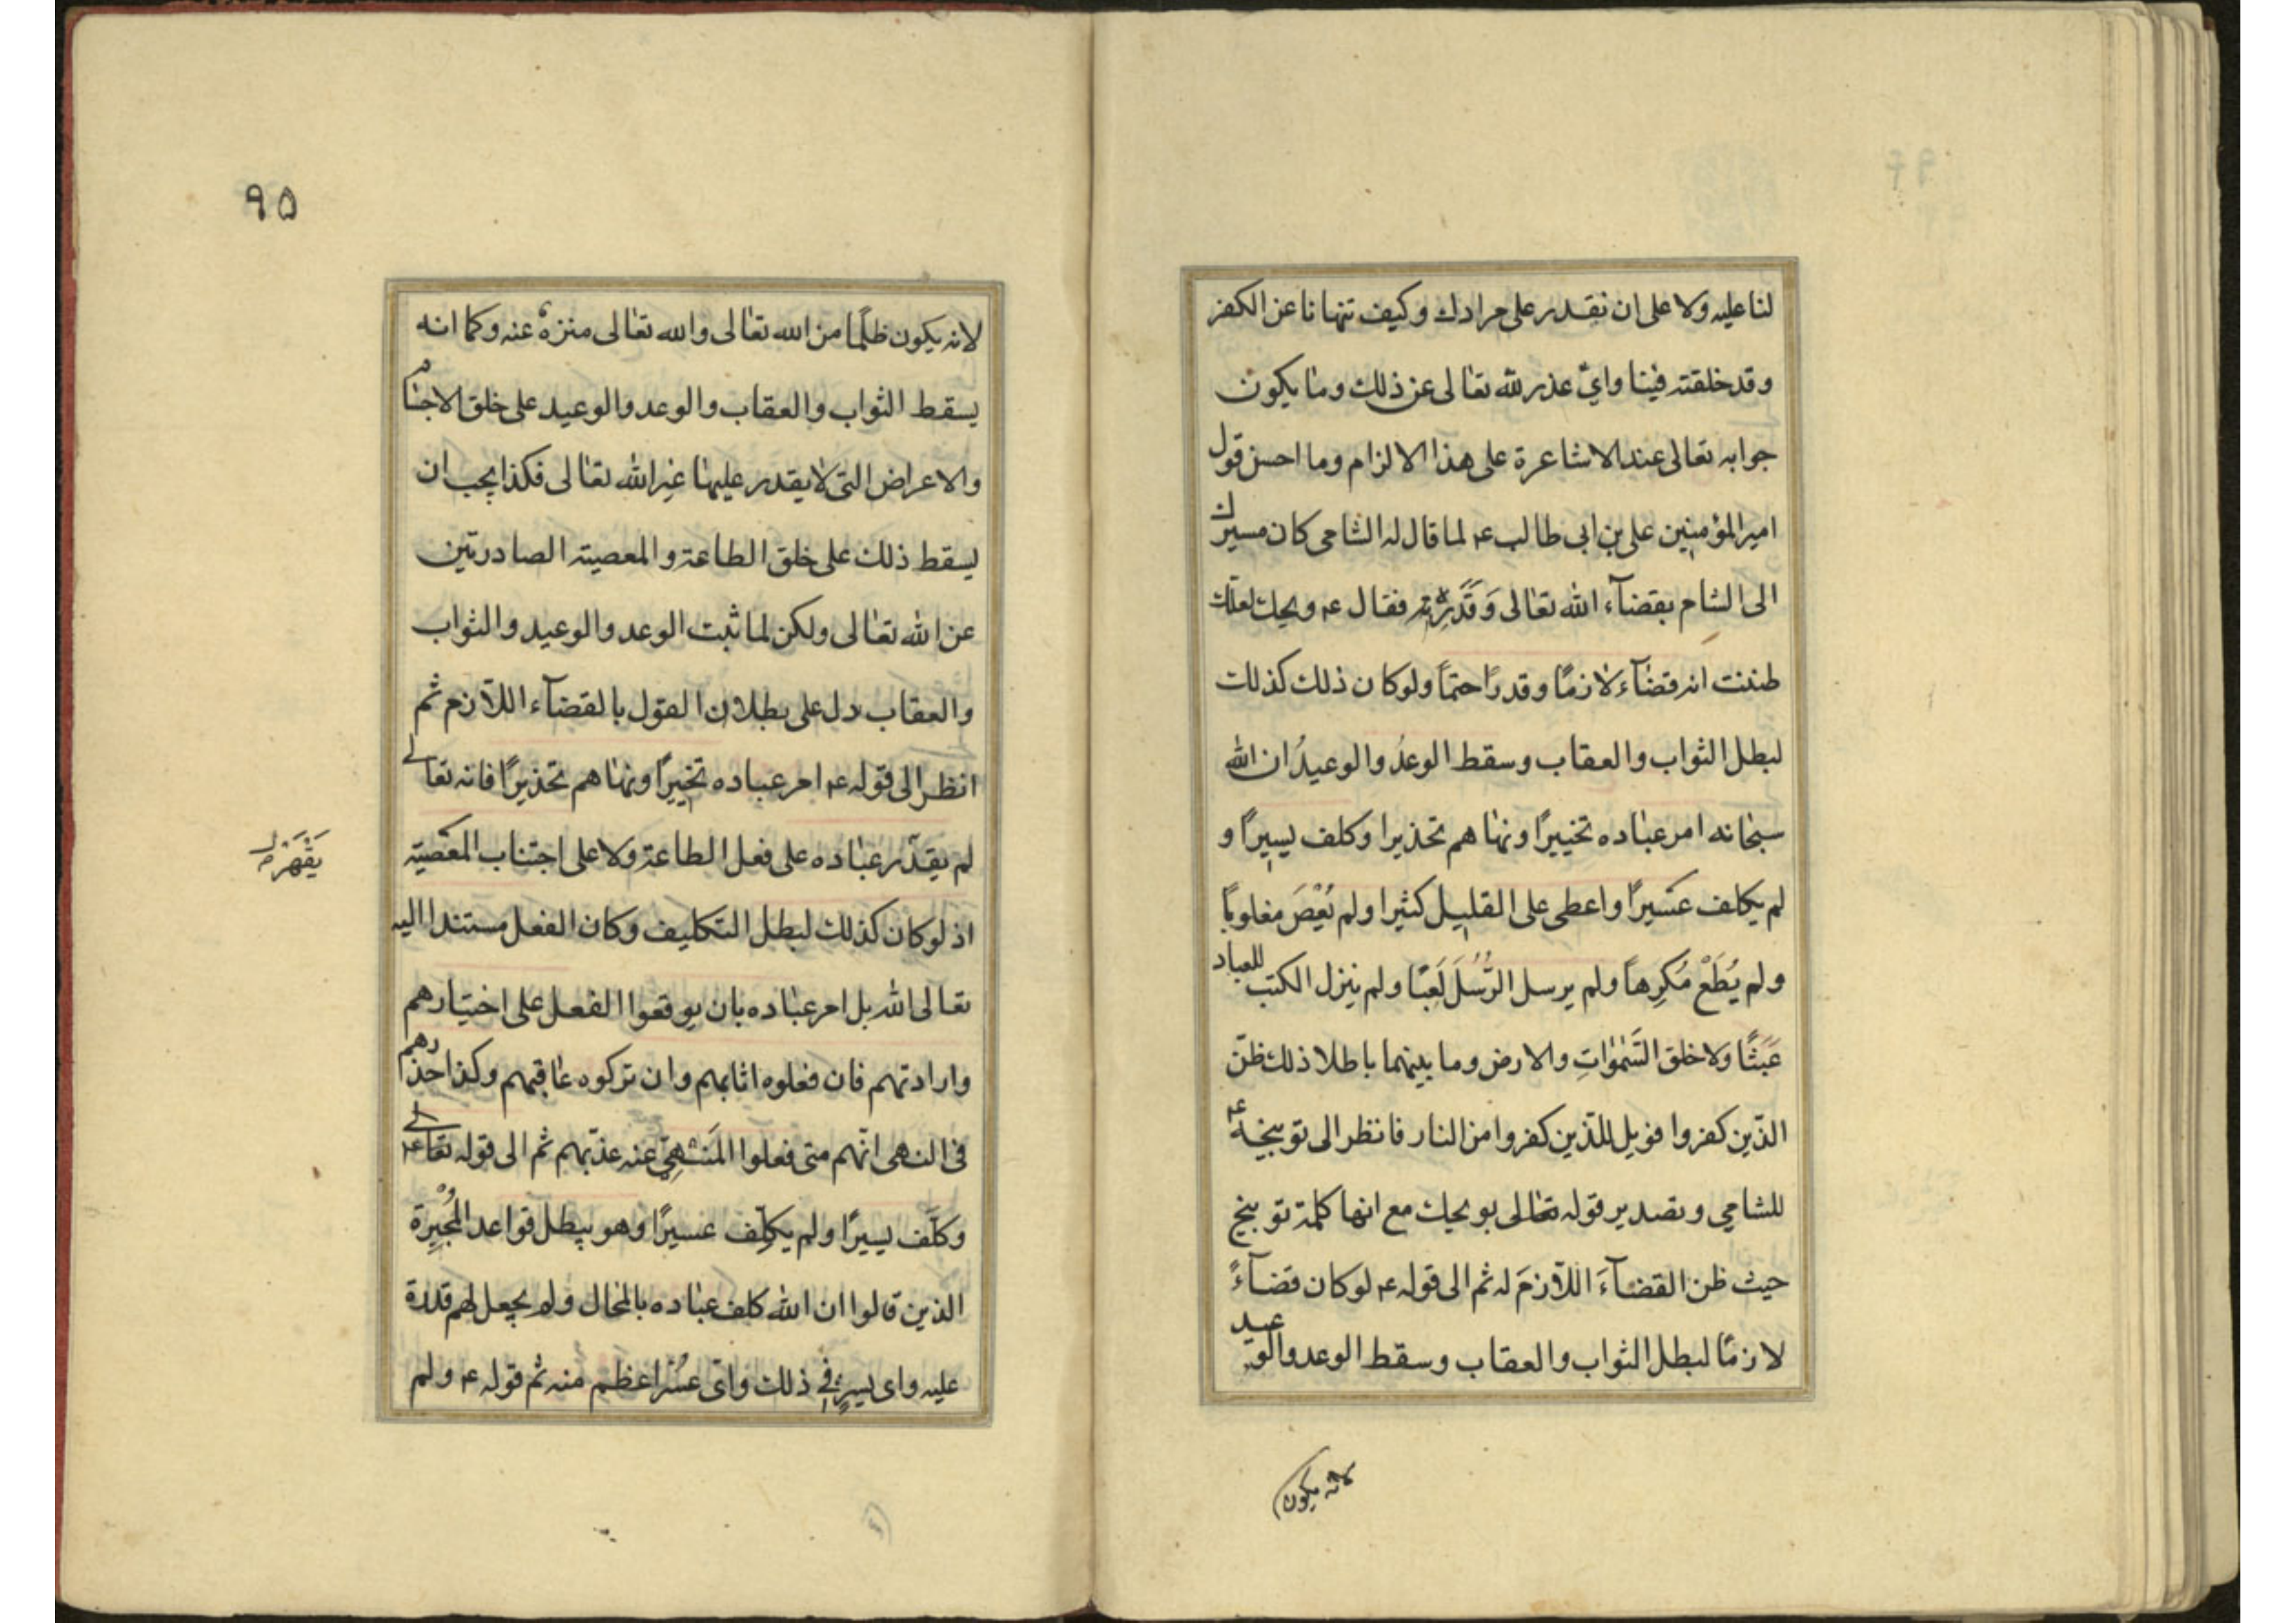 لنا عليه ولا على ان نقدر على مرادك وكيف تنهانا عن الكفر
وقد خلقته فينا وايّ عذر لله تعالى عن ذلك وما يكون
جوابه تعالى عند الاشاعرة على هذا الالزام وما احسن قول
امير المؤمنين على بن ابى طالب ع لما قال له الشامى كان مسيرك
الى الشام بقضآء الله تعالى وَقَدَرِه فقال ع ويحك لعلك
ظننت انه قضآء لازمًا وقدرًا حتمًا ولو كان ذلك كذلك
لبطل الثواب والعقاب وسقط الوعدُ والوعيدُ ان الله
سبحانه امر عباده تخييرًا ونهاهم تحذيرا وكلف يسيرًا و
لم يكلف عسيرًا واعطى على القليل كثيرا ولم يُعْصَ مغلوبًا
ولم يُطَعْ مُكرِهاً ولم يرسل الرُّسُلَ لَعِبًا ولم ينزل الكتب للعباد
عَبَثًا ولا خلق السَّمٰوٰاتِ والارض وما بينهما باطلا ذلك ظنّ
الذّين كفروا فويل للذّين كفروا من النار فانظر الى توبيخه ع
للشامي وتصدير قوله تعالى بويحك مع انها كلمة توبيخ
حيث ظن القضآءَ اللآزمَ له ثم الى قوله ع لو كان قضآءً
لازمًا لبطل الثواب والعقاب وسقط الوعد والوعيد
لانه يكون
٩٥
لانه يكون ظلمًا من الله تعالى والله تعالى منزهٌ عنه وكما انه
يسقط الثواب والعقاب والوعد والوعيد على خلق الاجسام
والاعراض التى لا يقدر عليها غير الله تعالى فكذا يجب ان
يسقط ذلك على خلق الطاعة والمعصية الصادرتين
عن الله تعالى ولكن لما ثبت الوعد والوعيد والثواب
والعقاب دل على بطلان القول بالقضآء اللآزم ثم
انظر الى قوله ع امر عباده تخييرًا ونهاهم تحذيرًا فانه تعالى
لم يقدّر عباده على فعل الطاعة ولا على اجتناب المعصية
اذ لو كان كذلك لبطل التكليف وكان الفعل مستندا اليه
تعالى الله بل امر عباده بان يوقعوا الفعل على اختيارهم
وارادتهم فان فعلوه اثابهم وان تركوه عاقبهم وكذا حذرهم
فى النهى انّهم متى فعلوا المَنْهِيَّ عنه عذّبهم ثم الى قوله تعالى ع
وكلَّف يسيرًا ولم يكلِّف عسيرًا وهو يبطل قواعد المُجْبِرة
الذين قالوا ان الله كلف عباده بالمحال ولم يجعل لهم قدرة
عليه واى يسيرٍ فى ذلك واىّ عُسْرٍ اعظم منه ثم قوله ع ولم